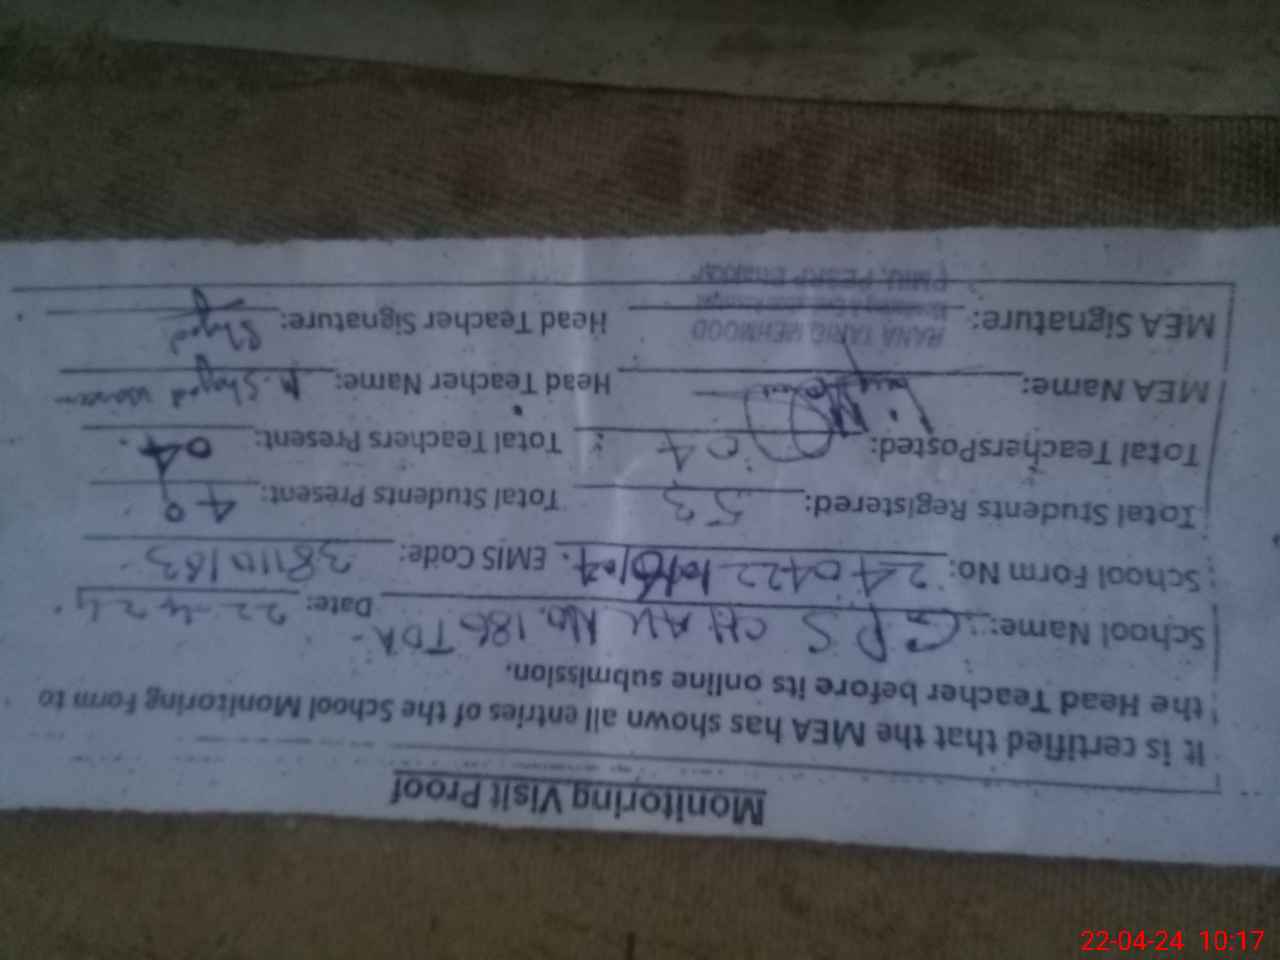 Monitoring Visit Proof
It is certified that the MEA has shown all entries of the School Monitoring Form to
the Head Teacher before its online submission.
School Name: GPS CHAK No. 186 TDA Date: 22-4-24
School Form No: 240422 EMIS Code: 38110183
Total Students Registered: 53 Total Students Present: 49
Total TeachersPosted: 04 Total Teachers Present: 04
MEA Name: Head Teacher Name: M. Shajad
MEA Signature: Head Teacher Signature: Shajad
RANA TARIQ MEHMOOD
PMIU, PESRP Bhakkar
22-04-24 10:17